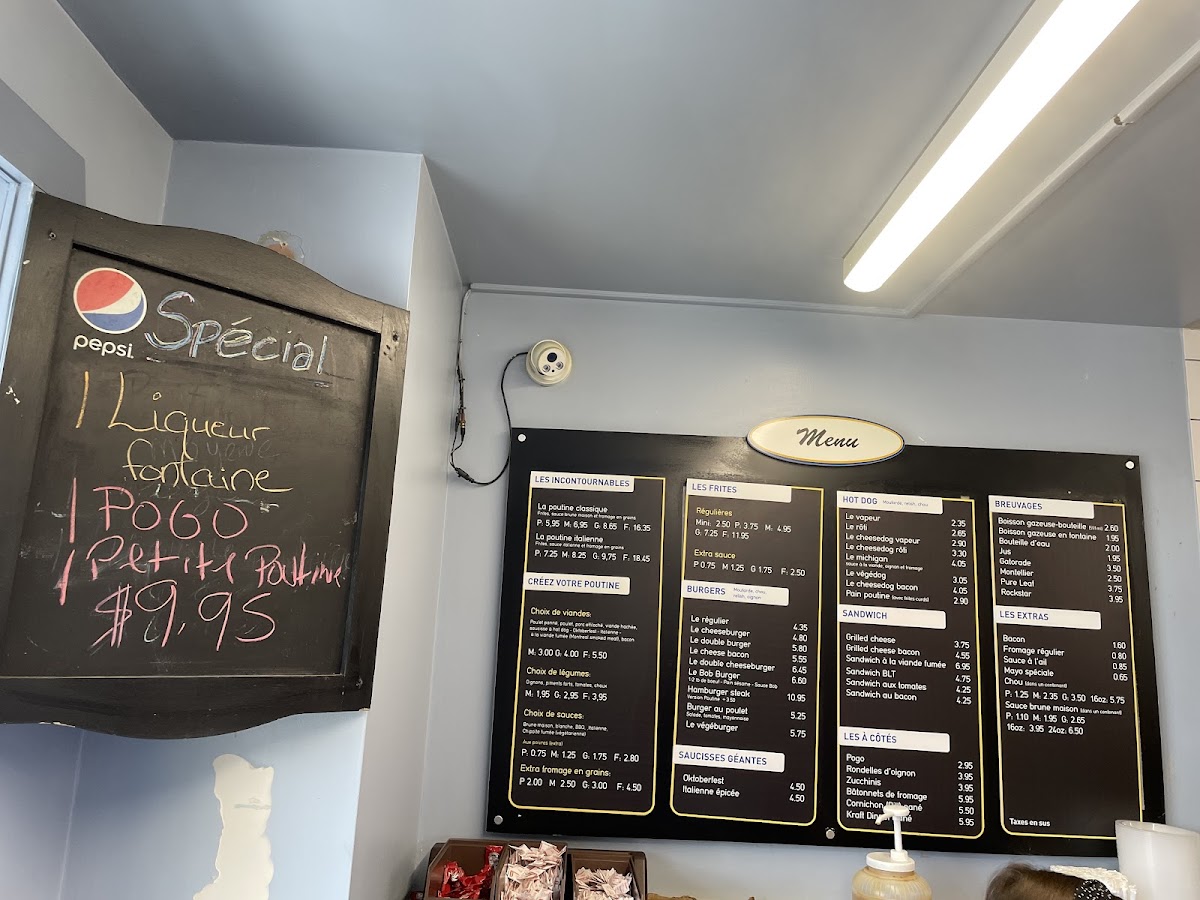 pepsi
Spécial
1 Liqueur
fontaine
1 POGO
1 Petite Poutine
$9,95
Menu
LES INCONTOURNABLES
La poutine classique
Frites, sauce brune maison et fromage en grains
P: 5,95 M: 6,95 G: 8.65 F: 16.35
La poutine italienne
Frites, sauce italienne et fromage en grains
P: 7.25 M: 8.25 G: 9,75 F: 18.45
CRÉEZ VOTRE POUTINE
Choix de viandes:
Poulet pané, poulet, porc effiloché, viande hachée,
saucisse à hot dog - Oktoberfest - Italienne -
à la viande fumée (Montreal smoked meat), bacon
M: 3.00 G: 4.00 F: 5.50
Choix de légumes:
Oignons, piments forts, tomates, choux
M: 1,95 G: 2,95 F: 3,95
Choix de sauces:
Brune maison, blanche, BBQ, italienne,
Chipotle fumée (végétarienne)
Aux poivres (extra)
P: 0.75 M: 1.25 G: 1.75 F: 2.80
Extra fromage en grains:
P 2.00 M 2.50 G: 3.00 F: 4.50
LES FRITES
Régulières
Mini: 2.50 P: 3.75 M: 4.95
G: 7.25 F: 11.95
Extra sauce
P 0.75 M 1.25 G 1.75 F: 2.50
BURGERS Moutarde, chou,
relish, oignon
Le régulier 4.35
Le cheeseburger 4.80
Le double burger 5.80
Le cheese bacon 5.55
Le double cheeseburger 6.45
Le Bob Burger 6.60
1/2 lb de boeuf - Pain sésame - Sauce Bob
Hamburger steak 10.95
Version Poutine + 3.50
Burger au poulet 5.25
Salade, tomates, mayonnaise
Le végéburger 5.75
SAUCISSES GÉANTES
Oktoberfest 4.50
Italienne épicée 4.50
HOT DOG Moutarde, relish, chou
Le vapeur 2.35
Le rôti 2.65
Le cheesedog vapeur 2.90
Le cheesedog rôti 3.30
Le michigan 4.05
sauce à la viande, oignon et fromage
Le végédog 3.05
Le cheesedog bacon 4.05
Pain poutine (avec frites curds) 2.90
SANDWICH
Grilled cheese 3.75
Grilled cheese bacon 4.55
Sandwich à la viande fumée 6.95
Sandwich BLT 4.75
Sandwich aux tomates 4.25
Sandwich au bacon 4.25
LES À CÔTÉS
Pogo 2.95
Rondelles d'oignon 3.95
Zucchinis 3.95
Bâtonnets de fromage 5.95
Cornichon frit pané 5.50
Kraft Dinner pané 5.95
BREUVAGES
Boisson gazeuse-bouteille 2.60
Boisson gazeuse en fontaine 1.95
Bouteille d'eau 2.00
Jus 1.95
Gatorade 3.50
Montellier 2.50
Pure Leaf 3.75
Rockstar 3.95
LES EXTRAS
Bacon 1.60
Fromage régulier 0.80
Sauce à l'ail 0.85
Mayo spéciale 0.65
Chou (dans un contenant)
P: 1.25 M: 2.35 G: 3.50 16oz: 5.75
Sauce brune maison (dans un contenant)
P: 1.10 M: 1.95 G: 2.65
16oz: 3.95 24oz: 6.50
Taxes en sus